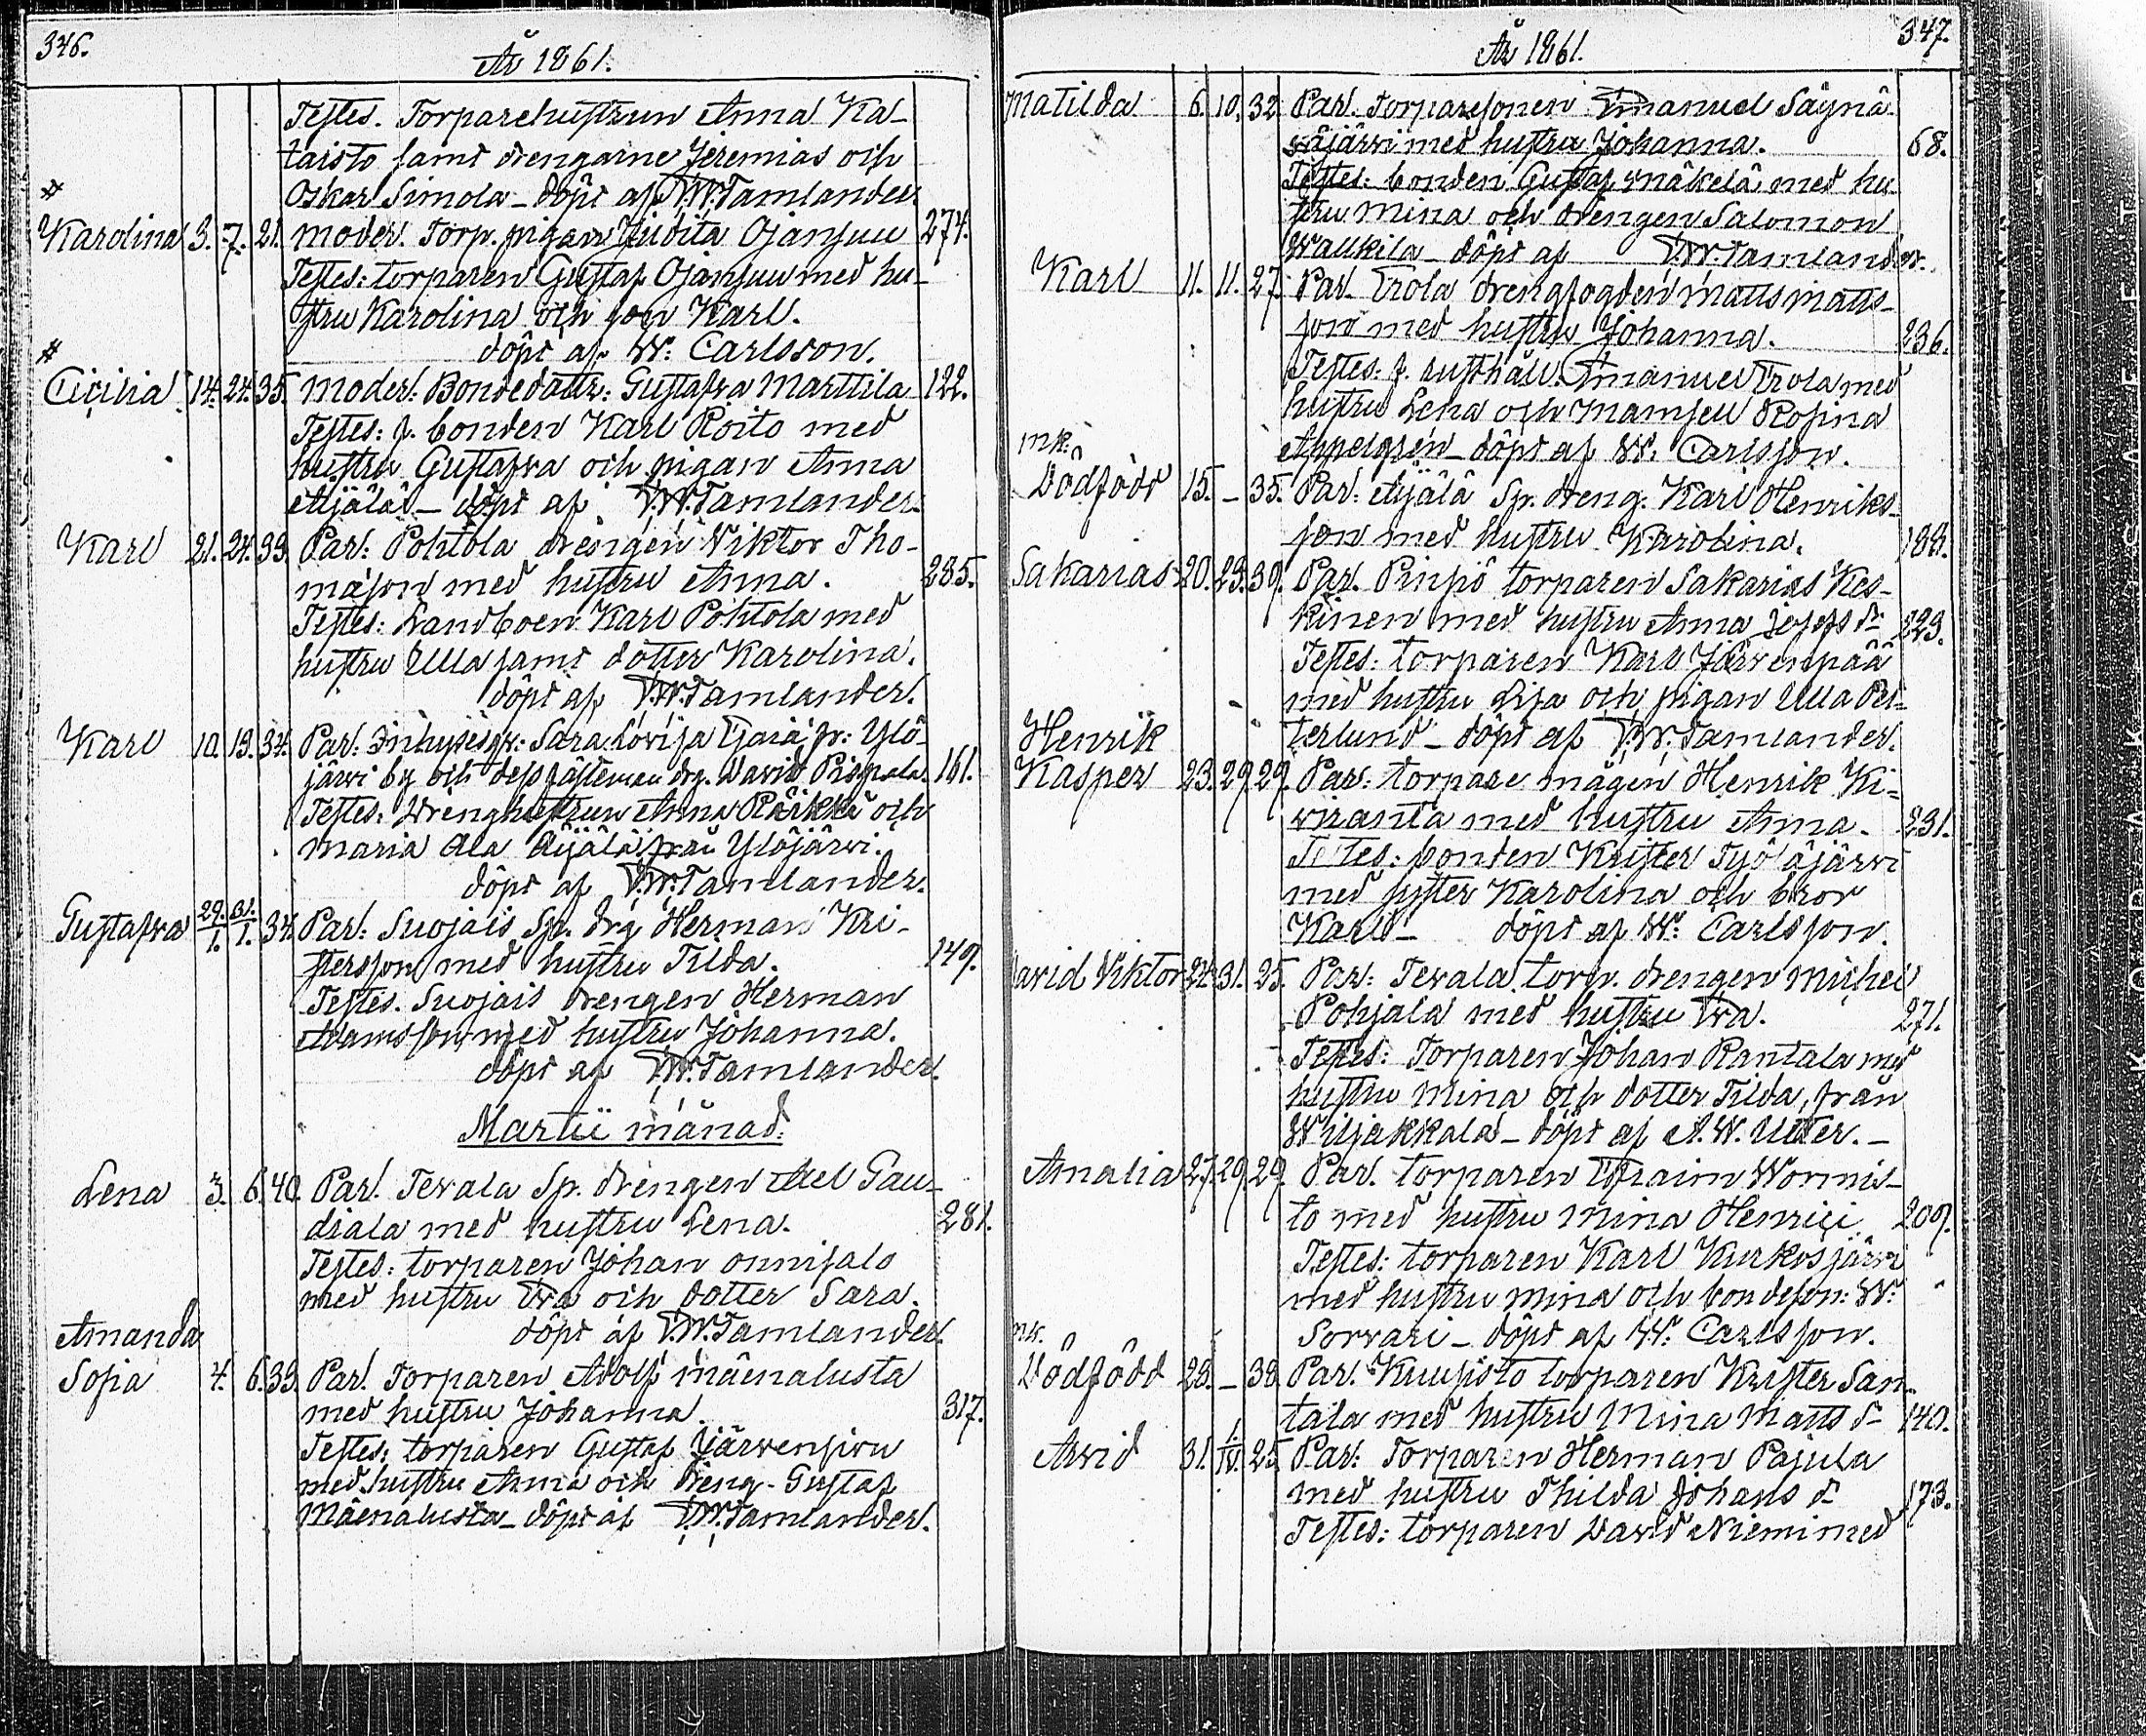 346.
År 1861.
Testes. Torparehustrun Anna Ka-
taisto samt drengarne Jeremias och
# Oskar Simola - döpt af F.W. Tamlander
Karolina 3. 7. 21. Moder. Torp. pigan Judita Ojansuu 274.
Testes: torparen Gustaf Ojansuu med hu-
stru Karolina och son Karl.
# döpt af W. Carlsson.
Cicilia 14. 24. 35. Moder: Bondedottr: Gustafva Marttila 122.
Testes: f. bonden Karl Roito med
hustru Gustafva och pigan Anna
Äijälä - döpt af F.W. Tamlander.
Karl 21. 24. 33. Par: Pohtola drengen Viktor Tho-
masson med hustru Anna. 285.
Testes: Landboen Karl Pohtola med
hustru Ulla samt dotter Karolina.
döpt af F.W. Tamlander.
Karl 10. 19. 34. Par: Sara Lovisa fr: Ylö-
järvi by och dess fästeman drg. David Pispala. 161.
Testes. Drenghustrun Anna Räikkä och
Maria Ala Äijälä från Ylöjärvi.
döpt af F.W. Tamlander.
Gustafva 29./1. 31./1. 34. Par: Suojais Sp. drg Herman Kri-
stersson med hustru Tilda. 149.
Testes. Suojais drengen Herman
Adamsson med hustru Johanna.
döpt af F.W. Tamlander.
Martii månad:
Lena 3. 6. 40. Par. Tevala Sp. drengen Abel Pau-
diala med hustru Lena. 281.
Testes: torparen Johan Onnisalo
med hustru Eva och dotter Sara.
Amanda döpt af F.W. Tamlander.
Sofia 4. 6. 33. Par. Torparen Adolf Mäenalusta
med hustru Johanna. 317.
Testes: torparen Gustaf Järvensivu
med hustru Anna och dreng. Gustaf
Mäenalusta - döpt af F.W. Tamlander.
347.
År 1861.
Matilda 6. 10. 32. Par. Torparesonen Emanuel Säynä-
väjärvi med hustru Johanna. 68.
Testes: bonden Gustaf Mäkelä med hu-
stru Mina och drengen Salomon
Waukila - döpt af F.W. Tamlander.
Karl 11. 11. 27. Par. Erola drengfogden Matts Matts-
son med hustru Johanna. 236.
Testes: f. rusthåll. Emanuel Erola med
hustru Lena och Mamsell Rosina
mk. Appelgren - döpt af W. Carlsson.
Dödfödd 15. - 35. Par: Äijälä Sp. dreng. Karl Henriks-
son med hustru Karolina. 188.
Sakarias 20. 23. 39. Par. Pinsiö torparen Sakarias Kes-
kinen med hustru Anna Josefs dr 223.
Testes: torparen Karl Järvenpää
med hustru Lisa och pigan Ulla Pet-
Henrik terlund - döpt af F.W. Tamlander.
Kasper 23. 29. 29. Par: torpare mågen Henrik Ki-
viranta med hustru Anna. 231.
Testes: bonden Krister Työläjärvi
med syster Karolina och bror
Karl - döpt af W. Carlsson.
David Viktor 24. 31. 25. Par: Tevala torp. drengen Michel
Pohjala med hustru Eva. 271.
Testes: Torparen Johan Rantala med
hustru Mina och dotter Tilda, från
Wiljakkala - döpt af A.W. Utter. -
Amalia 27. 29. 29. Par. torparen Efraim Wormis-
to med hustru Mina Henrici 209.
Testes: torparen Karl Kurkosjärvi
med hustru Mina och bondeson: W.
mk. Sorvari - döpt af W. Carlsson.
Dödfödd 28. - 38. Par. Kruusisto torparen Krister San-
tala med hustru Mina Matts dr 140.
Arvid 31. 1./IV. 25. Par: Torparen Herman Pajula
med hustru Thilda Johans dr 173.
Testes: torparen David Niemi med